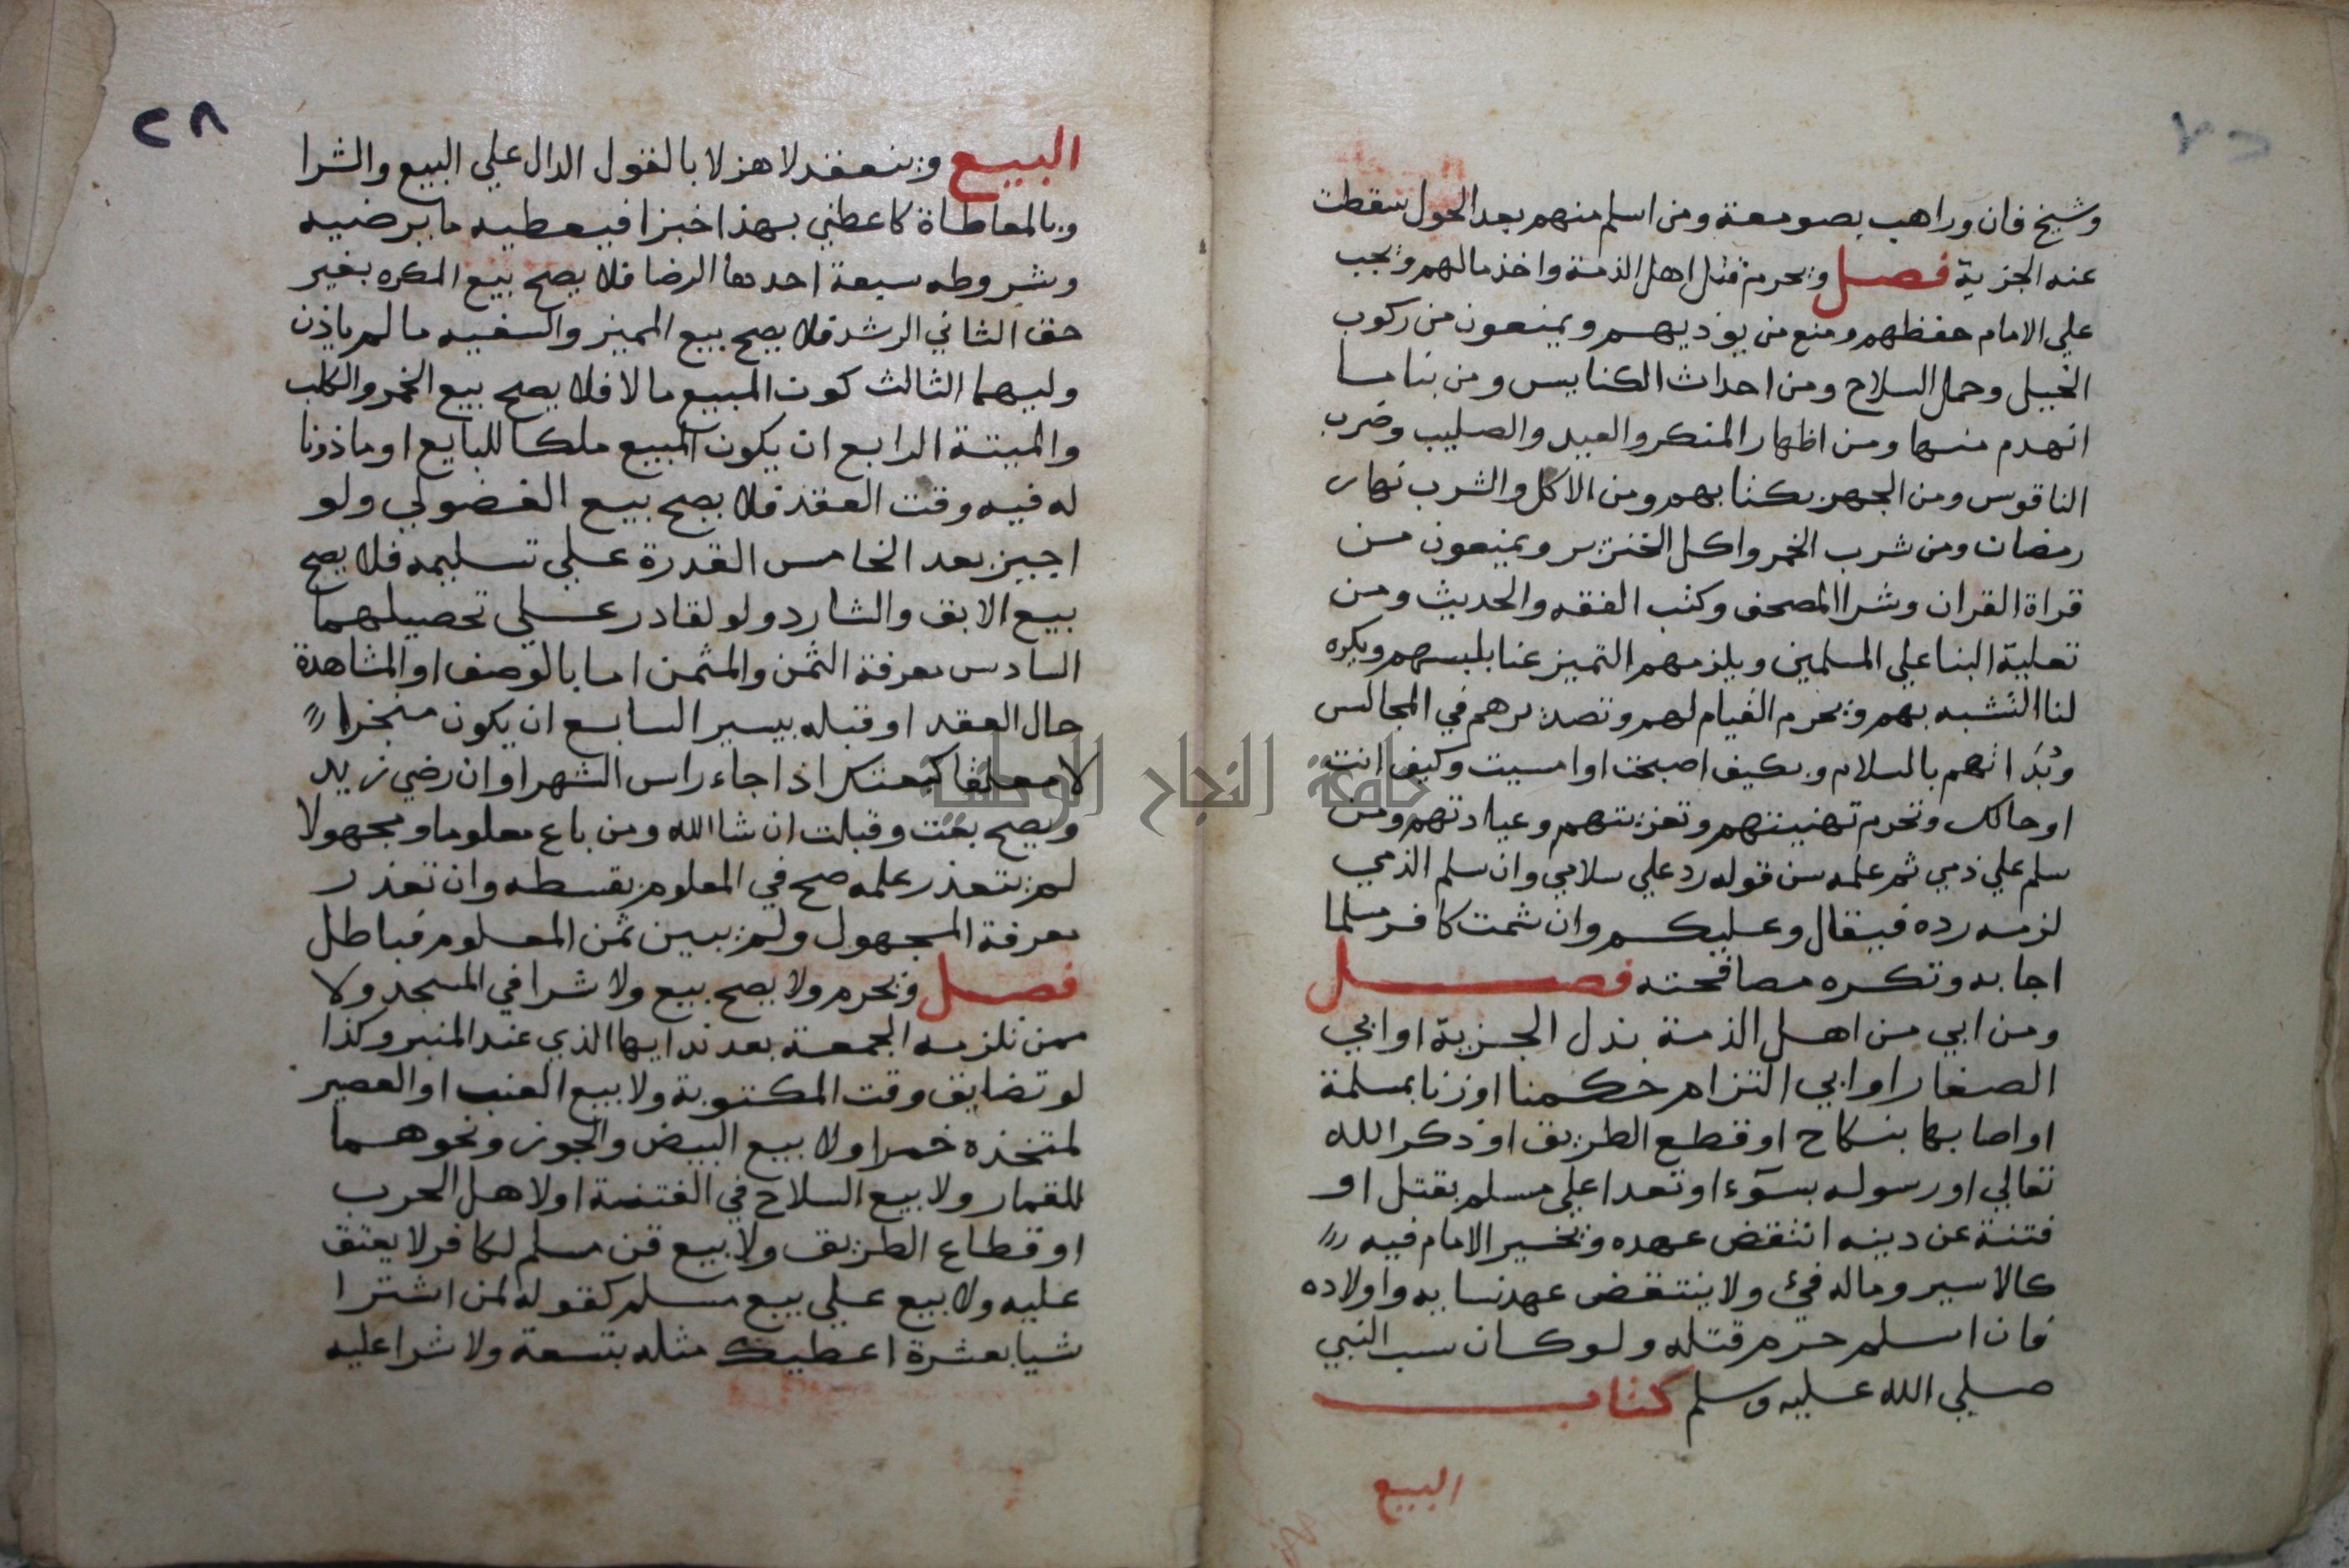 وشيخ فان وراهب بصومعة ومن اسلم منهم بعد الحول سقطت
عنه الجزية فصل ويحرم قتل اهل الذمة واخذ مالهم ويجب
علي الامام حفظهم ومنع من يوذيهم ويمنعون من ركوب
الخيل وحمل السلاح ومن احداث الكنايس ومن بنا ما
انهدم منها ومن اظهار المنكر والعيد والصليب وضرب
الناقوس ومن الجهر بكتابهم ومن الاكل والشرب نهار
رمضان ومن شرب الخمر واكل الخنزير ويمنعون من
قراة القران وشرا المصحف وكتب الفقه والحديث ومن
تعلية البنا علي المسلمين ويلزمهم التميز عنا بلبسهم ويكره
لنا التشبه بهم ويحرم القيام لهم وتصديرهم في المجالس
وبداتهم بالسلام وبكيف اصبحت او امسيت وكيف انت
او حالك وتحرم تهنيتهم وتعزيتهم وعيادتهم ومن
سلم علي ذمي ثم علمه سن قوله رد علي سلامي وان سلم الذمي
لزمه رده فيقال وعليكم وان شمت كافر مسلما
اجابه وتكره مصافحته فصل
ومن ابي من اهل الذمة بذل الجزية او ابي
الصغار او ابي التزام حكمنا او زنا بمسلمة
او اصابها بنكاح او قطع الطريق او ذكر الله
تعالي او رسوله بسوء او تعدا علي مسلم بقتل او
فتنة عن دينه انتقض عهده ويخير الامام فيه
كالاسير وماله فيء ولا ينتقض عهد نسايه واولاده
فان اسلم حرم قتله ولو كان سب النبي
صلي الله عليه وسلم كتاب
البيع
٢٨
البيع وينعقد لا هزلا بالقول الدال علي البيع والشرا
وبالمعاطاة كاعطني بهذا خبزا فيعطيه ما يرضيه
وشروطه سبعة احدها الرضا فلا يصح بيع المكره بغير
حق الثاني الرشد فلا يصح بيع المميز والسفيه ما لم ياذن
وليهما الثالث كون المبيع مالا فلا يصح بيع الخمر والكلب
والميتة الرابع ان يكون المبيع ملكا للبايع او ماذونا
له فيه وقت العقد فلا يصح بيع الفضولي ولو
اجيز بعد الخامس القدرة علي تسليمه فلا يصح
بيع الابق والشارد ولو لقادر علي تحصيلهما
السادس معرفة الثمن والمثمن اما بالوصف او المشاهدة
حال العقد او قبله بيسير السابع ان يكون منجزا
لا معلقا كبعتك اذا جاء راس الشهر او ان رضي زيد
ويصح بعت وقبلت ان شا الله ومن باع معلوما ومجهولا
لم يتعذر علمه صح في المعلوم بقسطه وان تعذر
معرفة المجهول ولم يبين ثمن المعلوم فباطل
فصل ويحرم ولا يصح بيع ولا شرا في المسجد ولا
ممن تلزمه الجمعة بعد ندايها الذي عند المنبر وكذا
لو تضايق وقت المكتوبة ولا بيع العنب او العصير
لمتخذه خمرا ولا بيع البيض والجوز ونحوهما
للقمار ولا بيع السلاح في الفتنة او لاهل الحرب
او قطاع الطريق ولا بيع قن مسلم لكافر لا يعتق
عليه ولا بيع علي بيع مسلم كقوله لمن اشترا
شيا بعشرة اعطيك مثله بتسعة ولا شرا عليه
جامعة النجاح الوطنية